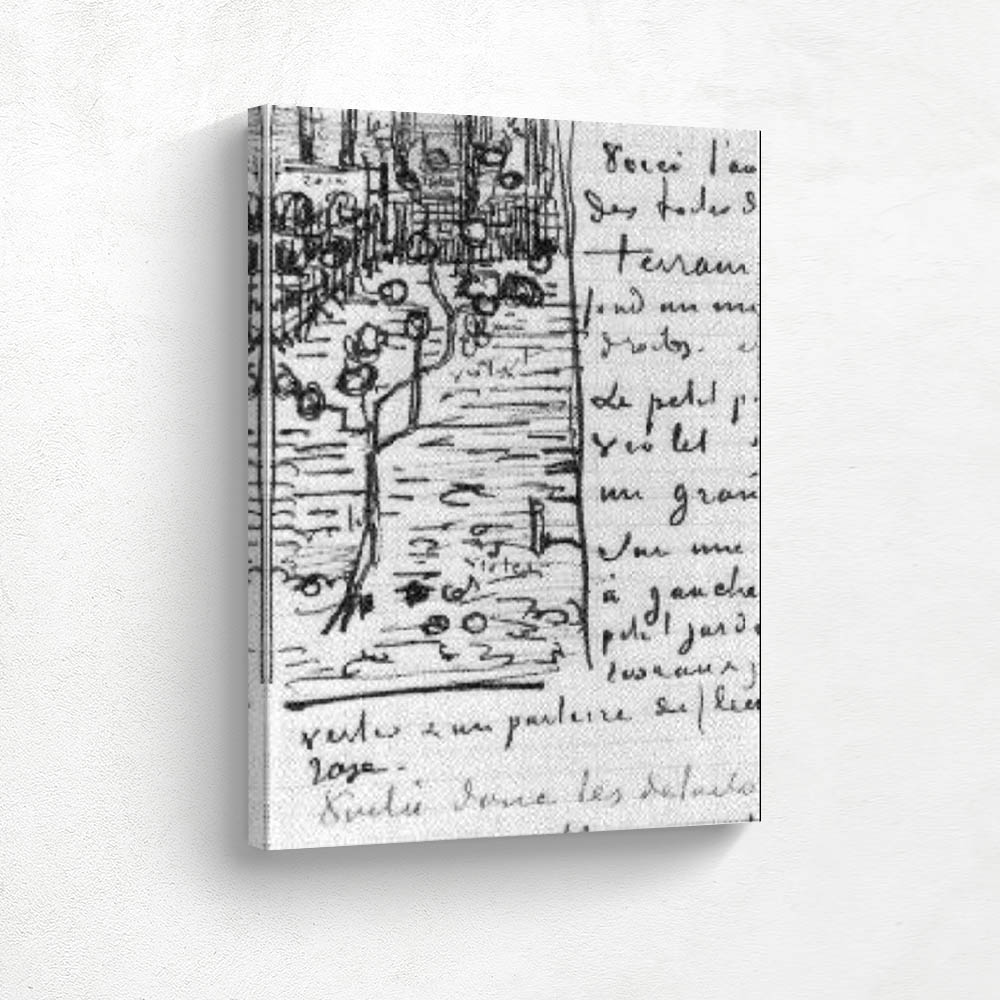 Voici l'au
des toiles d
Terrain
fond un mu
droits. e
Le petit p
violet
un gran
Sur une
à gauche
petit jard
rose
violet
violet
vertes & un parterre de fleu
rose.
Voilà donc les détails